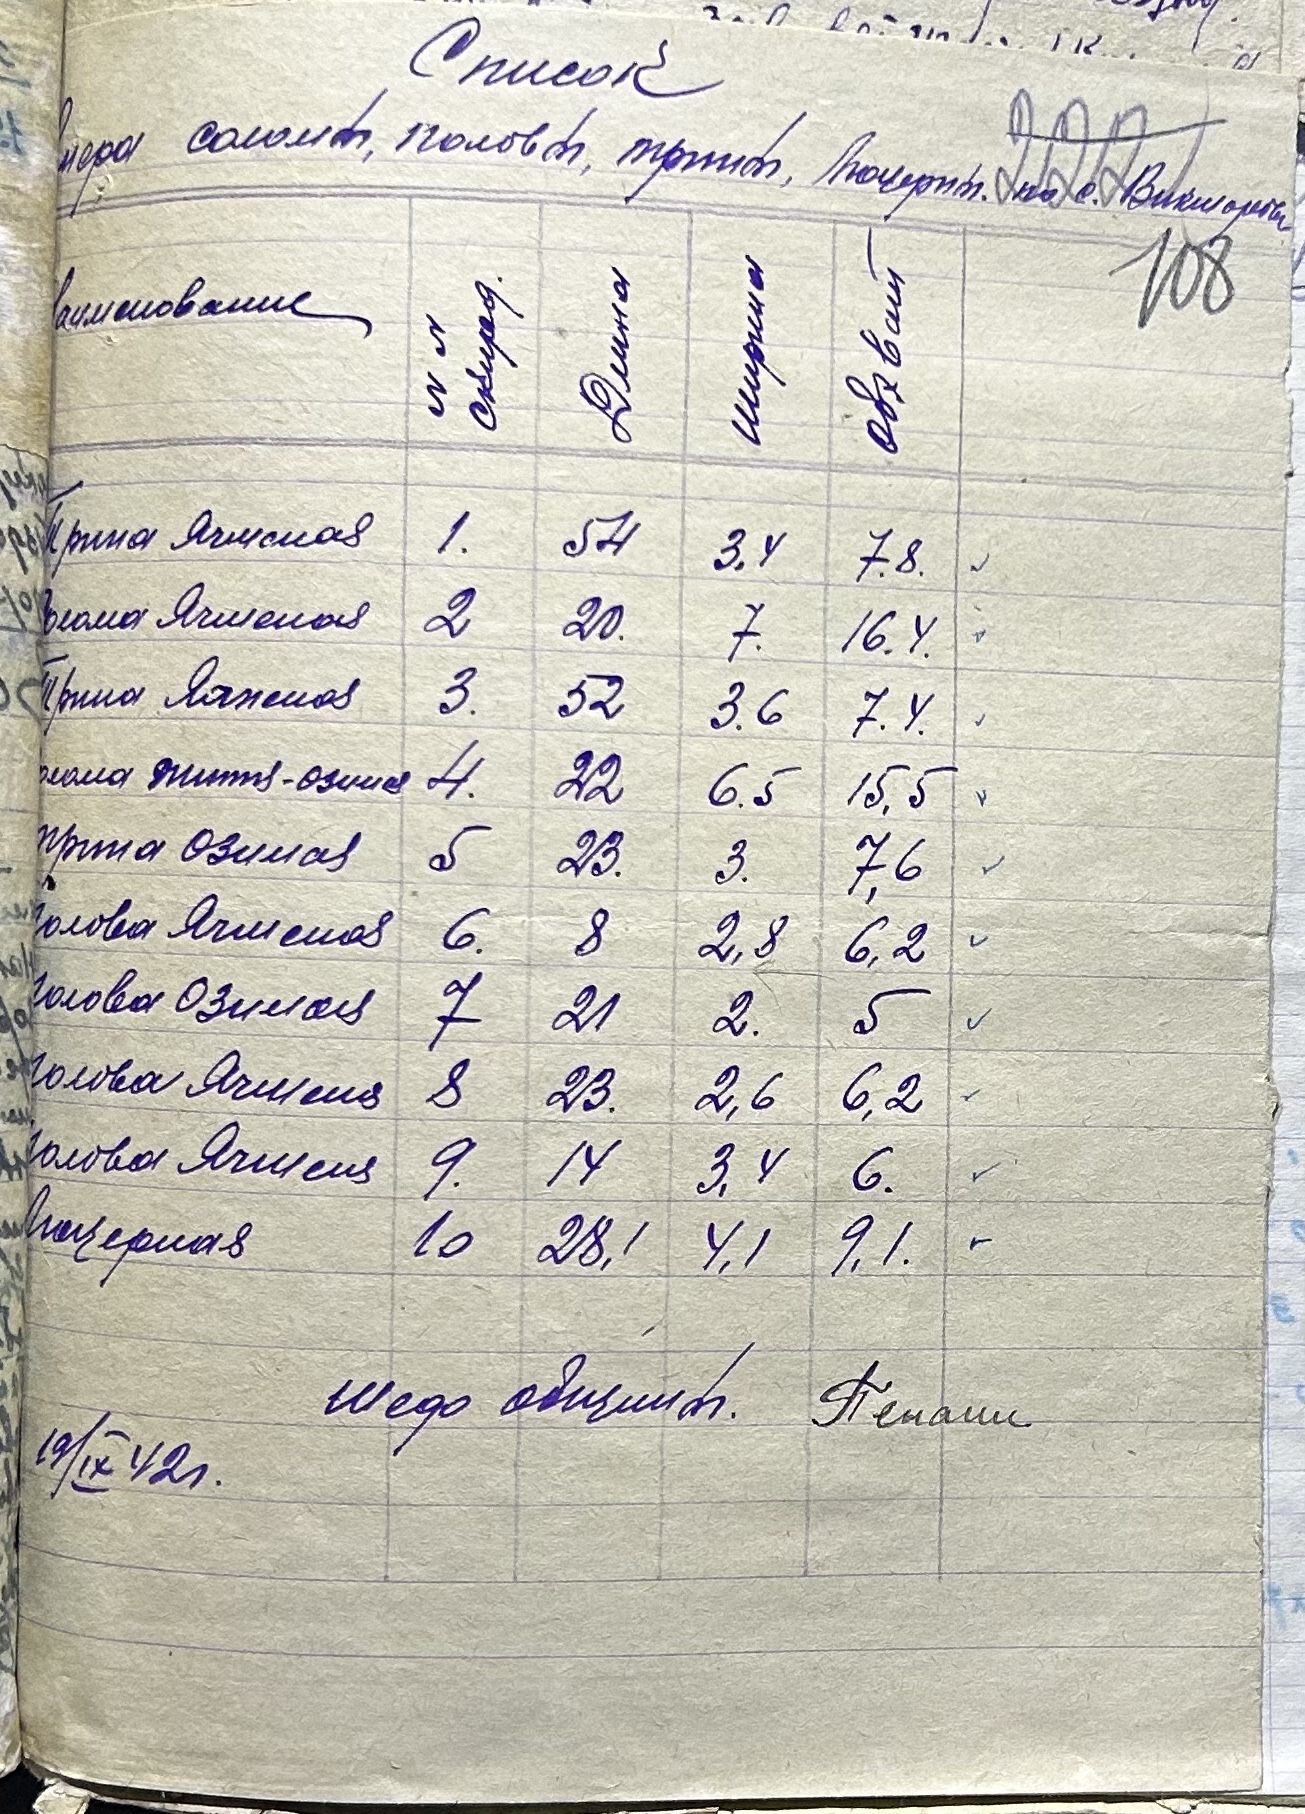 Список
мера соломы, половы, трины, Люцерны. по с. Викторовка
222
108
Наименование | №№ скирд. | Длина | Ширина | Обхват
Трина Ячменая 1. 54 3,4 7.8.
Солома Ячменая 2 20. 7. 16.4.
Трина Ячменая 3. 52 3.6 7.4.
олома жытня-озимая 4. 22 6.5 15,5
Трина Озимая 5 23. 3. 7,6
Полова Ячменая 6. 8 2,8 6,2
Полова Озимая 7 21 2. 5
Полова Ячменя 8 23. 2,6 6,2
Полова Ячменя 9. 14 3,4 6.
Люцерная 10 28,1 4,1 9,1.
Шеф общины.
19/IX 42г.